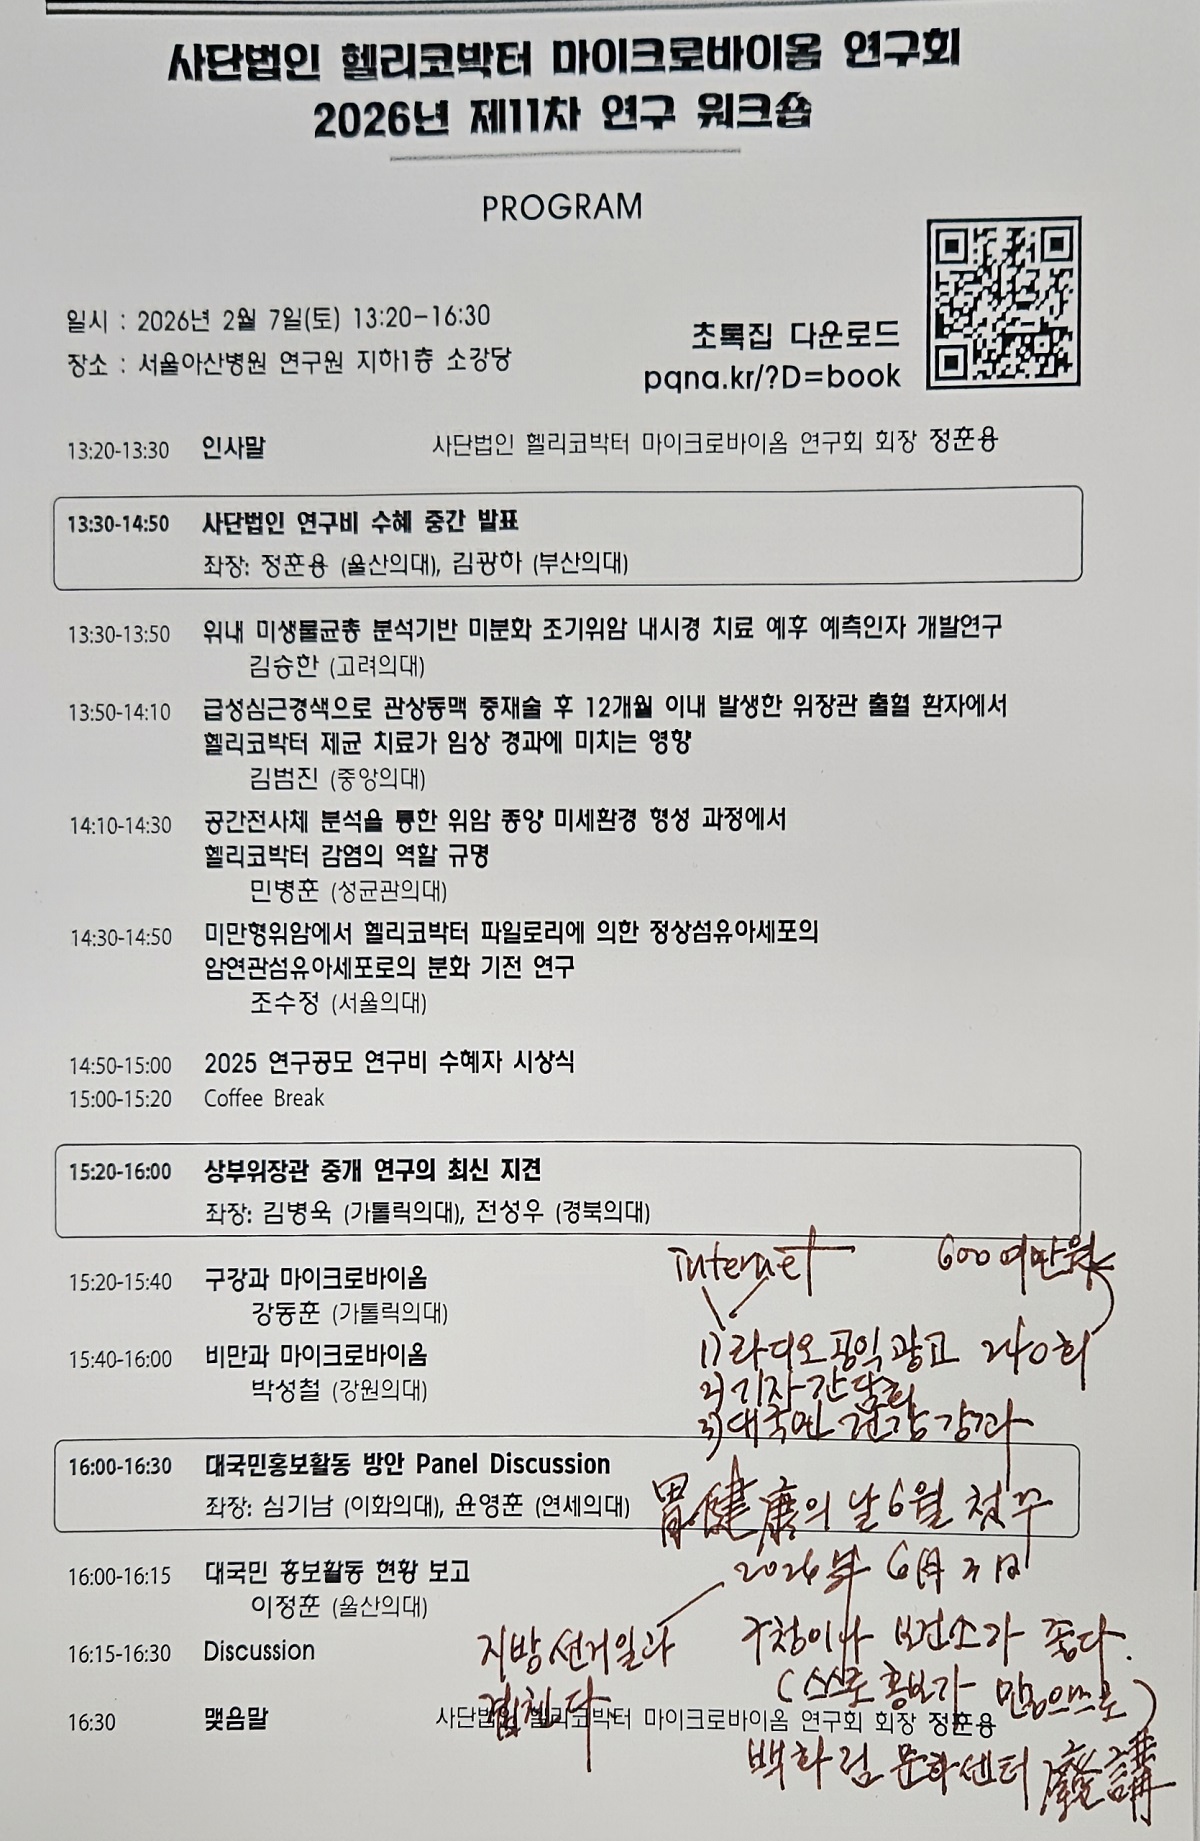 사단법인 헬리코박터 마이크로바이옴 연구회
2026년 제11차 연구 워크숍
PROGRAM
일시 : 2026년 2월 7일(토) 13:20-16:30
장소 : 서울아산병원 연구원 지하1층 소강당
초록집 다운로드
pqna.kr/?D=book
13:20-13:30 인사말 사단법인 헬리코박터 마이크로바이옴 연구회 회장 정훈용
13:30-14:50 사단법인 연구비 수혜 중간 발표
좌장: 정훈용 (울산의대), 김광하 (부산의대)
13:30-13:50 위내 미생물균총 분석기반 미분화 조기위암 내시경 치료 예후 예측인자 개발연구
김승한 (고려의대)
13:50-14:10 급성심근경색으로 관상동맥 중재술 후 12개월 이내 발생한 위장관 출혈 환자에서
헬리코박터 제균 치료가 임상 경과에 미치는 영향
김범진 (중앙의대)
14:10-14:30 공간전사체 분석을 통한 위암 종양 미세환경 형성 과정에서
헬리코박터 감염의 역할 규명
민병훈 (성균관의대)
14:30-14:50 미만형위암에서 헬리코박터 파일로리에 의한 정상섬유아세포의
암연관섬유아세포로의 분화 기전 연구
조수정 (서울의대)
14:50-15:00 2025 연구공모 연구비 수혜자 시상식
15:00-15:20 Coffee Break
15:20-16:00 상부위장관 중개 연구의 최신 지견
좌장: 김병욱 (가톨릭의대), 전성우 (경북의대)
internet 600여만원
15:20-15:40 구강과 마이크로바이옴
강동훈 (가톨릭의대)
1) 라디오 공익광고 240회
15:40-16:00 비만과 마이크로바이옴
박성철 (강원의대)
2) 기자간담회
3) 대국민 건강강좌
16:00-16:30 대국민홍보활동 방안 Panel Discussion
좌장: 심기남 (이화의대), 윤영훈 (연세의대)
胃健康의 날 6월 첫
16:00-16:15 대국민 홍보활동 현황 보고
이정훈 (울산의대)
2026年 6月 3日
16:15-16:30 Discussion
지방선거일과
겹친다
구청이나 보건소가 좋다.
(스스로 홍보가
16:30 맺음말 사단법인 헬리코박터 마이크로바이옴 연구회 회장 정훈용
백화점 문화센터